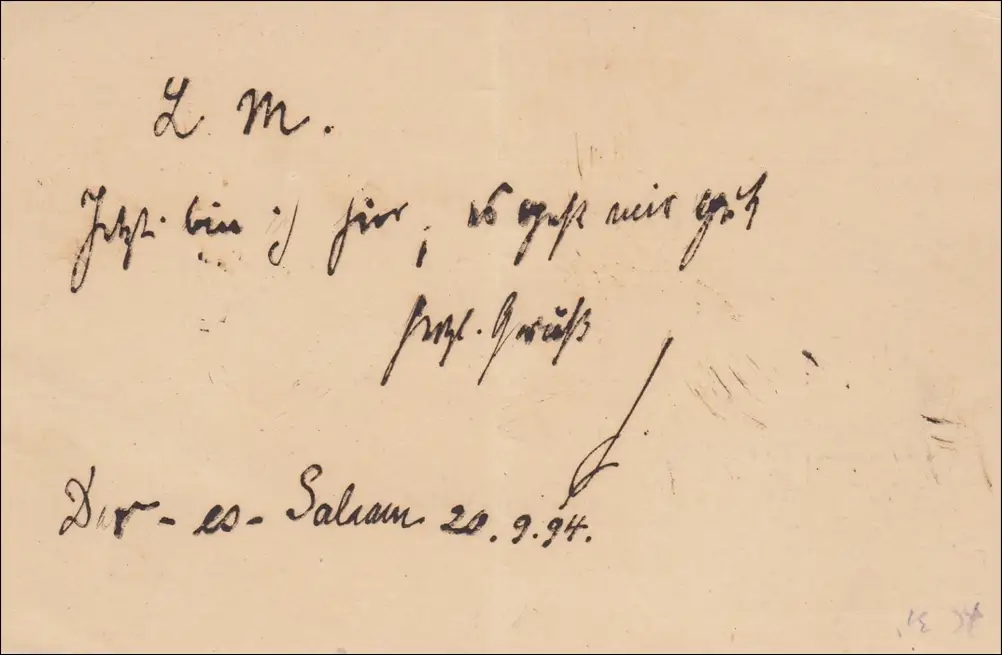 L. M.
Jetzt bin ich hier, es geht mir gut
herzl. Gruß
Dar-es-Salaam 20.9.94.